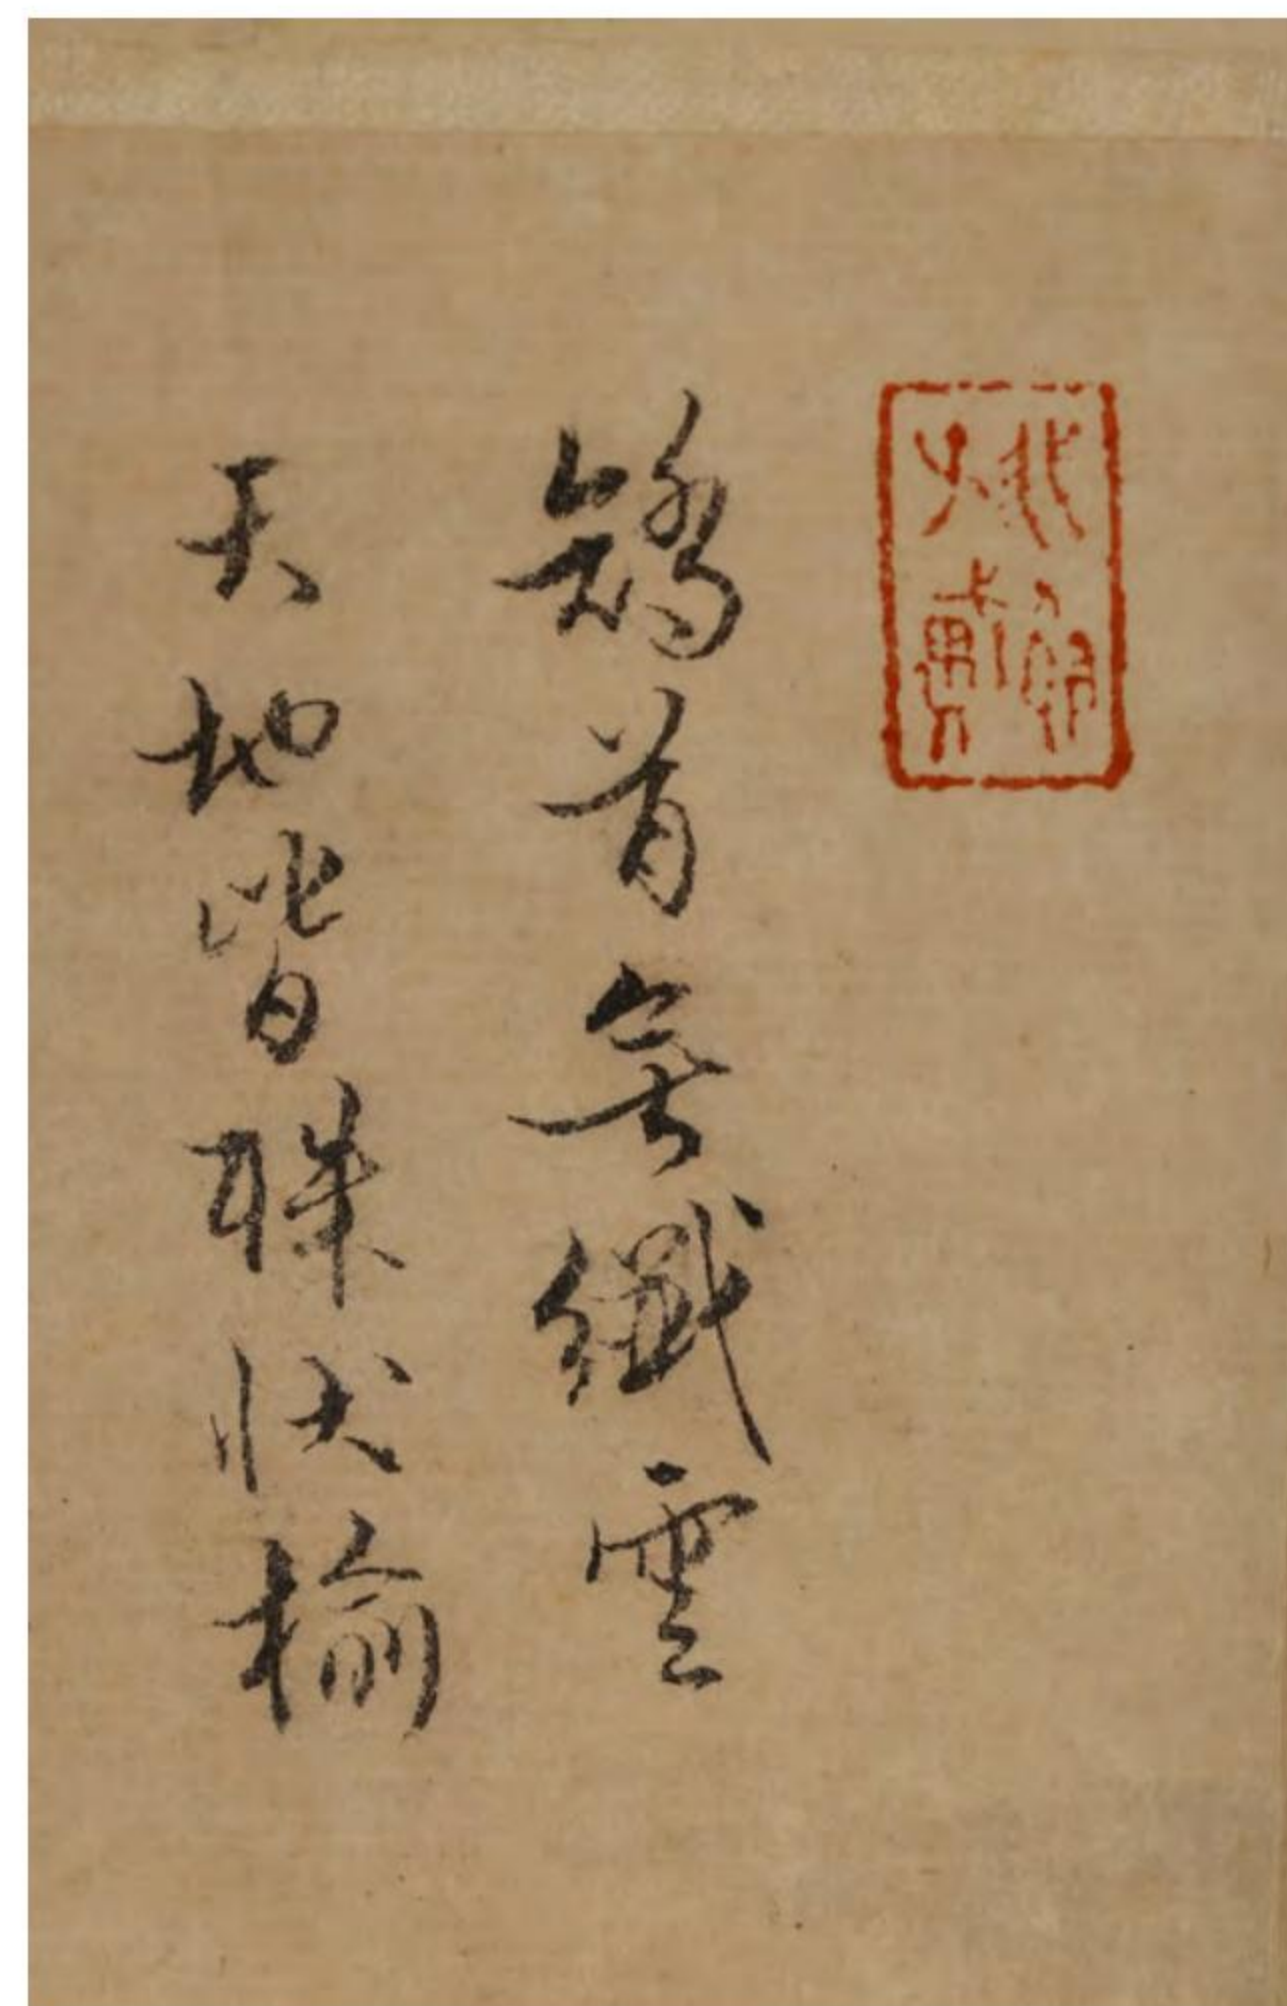 矯首無纖雲
天地皆殊狀榆